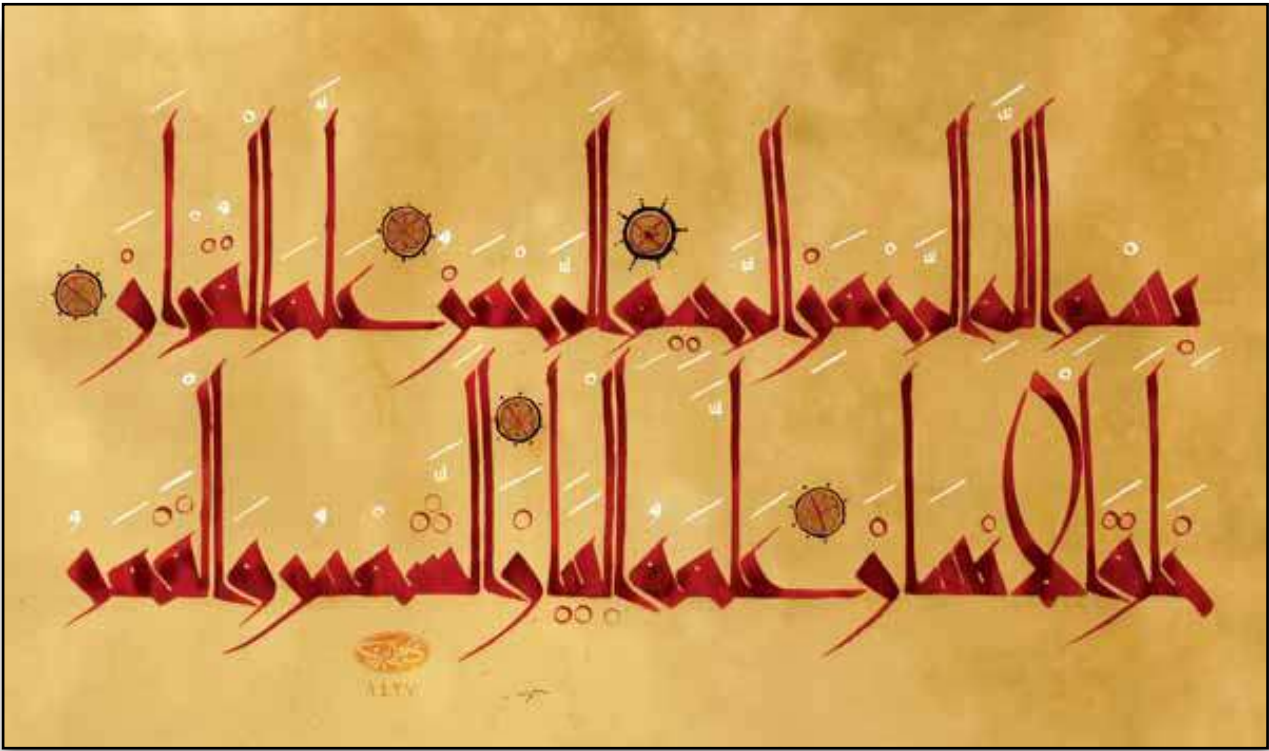 بسم الله الرحمن الرحيم الرحمن علم القرآن
خلق الإنسان علمه البيان الشمس والقمر
١٤٢٧